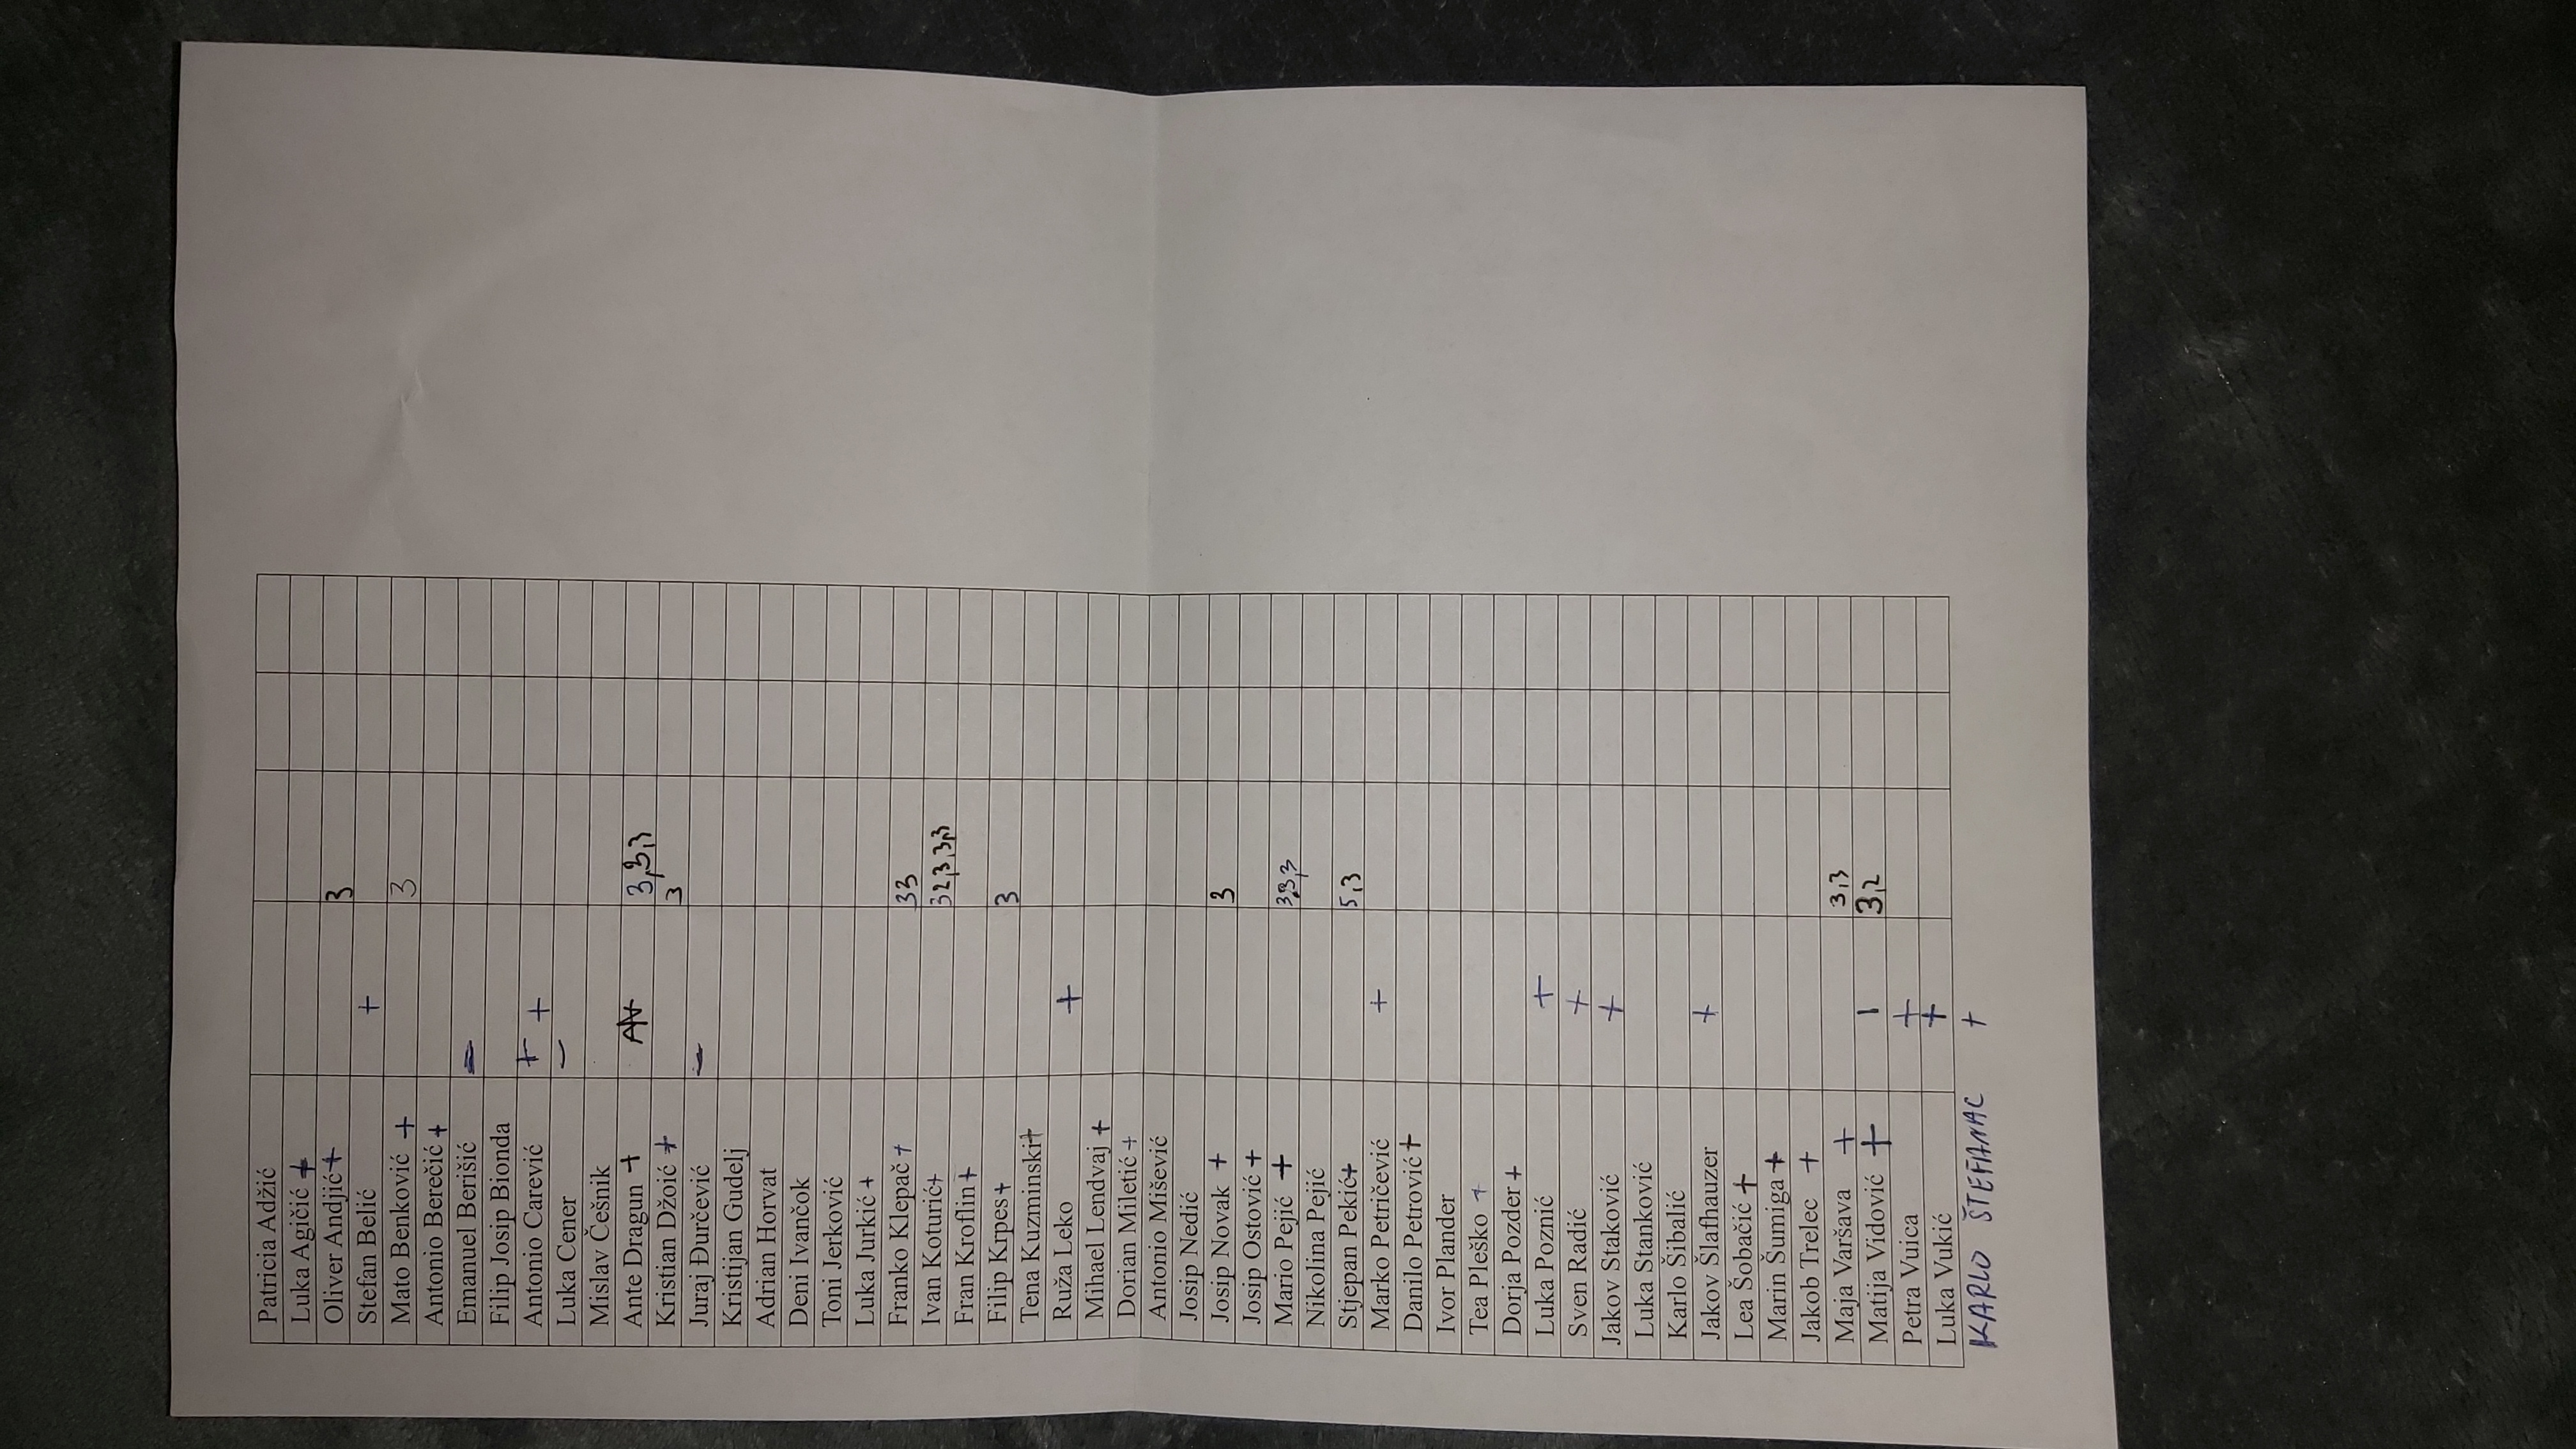 Patricia Adžić
Luka Agičić +
Oliver Andjić + 3
Stefan Belić +
Mato Benković + 3
Antonio Berečić +
Emanuel Berišić –
Filip Josip Bionda
Antonio Carević + +
Luka Cener –
Mislav Češnik
Ante Dragun + 3,3,3
Kristian Džoić + 3
Juraj Đurčević –
Kristijan Gudelj
Adrian Horvat
Deni Ivančok
Toni Jerković
Luka Jurkić +
Franko Klepač + 33
Ivan Koturić + 32,3,3,3
Fran Kroflin +
Filip Krpes + 3
Tena Kuzminski +
Ruža Leko +
Mihael Lendvaj +
Dorian Miletić +
Antonio Mišević
Josip Nedić
Josip Novak + 3
Josip Ostović +
Mario Pejić + 3,3,3
Nikolina Pejić
Stjepan Pekić + 5,3
Marko Petričević +
Danilo Petrović +
Ivor Plander
Tea Pleško +
Dorja Pozder +
Luka Poznić +
Sven Radić +
Jakov Staković +
Luka Stanković
Karlo Šibalić
Jakov Šlafhauzer +
Lea Šobačić +
Marin Šumiga +
Jakob Trelec +
Maja Varšava + 3,3
Matija Vidović + I 3,2
Petra Vuica +
Luka Vukić +
KARLO ŠTEFANAC +